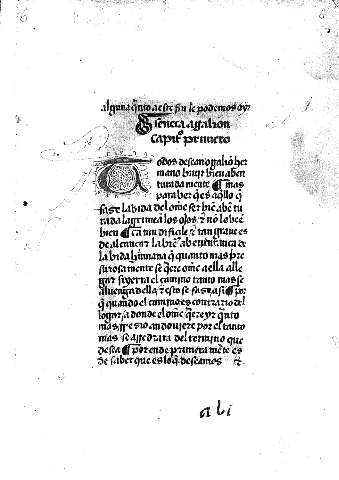 alguna q̃nto a este fin le podemos oyr
Seneca a galion
capit̃o primero
Todos desean o galiõ her
mano biuir bien aben
turada mente ¶ mas
para ber q̃ es aq̃llo q̃
faze la bida del om̃e ser biẽ abẽ tu
rada
los ojos ⁊ nõ lo beẽ
bien ¶ ca tan dificile ⁊ tan graue es
de alcançar la biẽ abenturança de
la bida humana q̃ quanto mas pre
surosamente se q̃ere om̃e a ella alle
gar si yerra el camino tanto mas se
aluenga della ⁊ esto se faze asi ¶ por
q̃ quando el camino es contrario del
logar a donde el om̃e q̃ere yr q̃nto
mas apresio andouiere por el tanto
mas se arredrara del termino que
desea ¶ por ende primera mẽte es
de saber que es lo q̃ deseamos ⁊